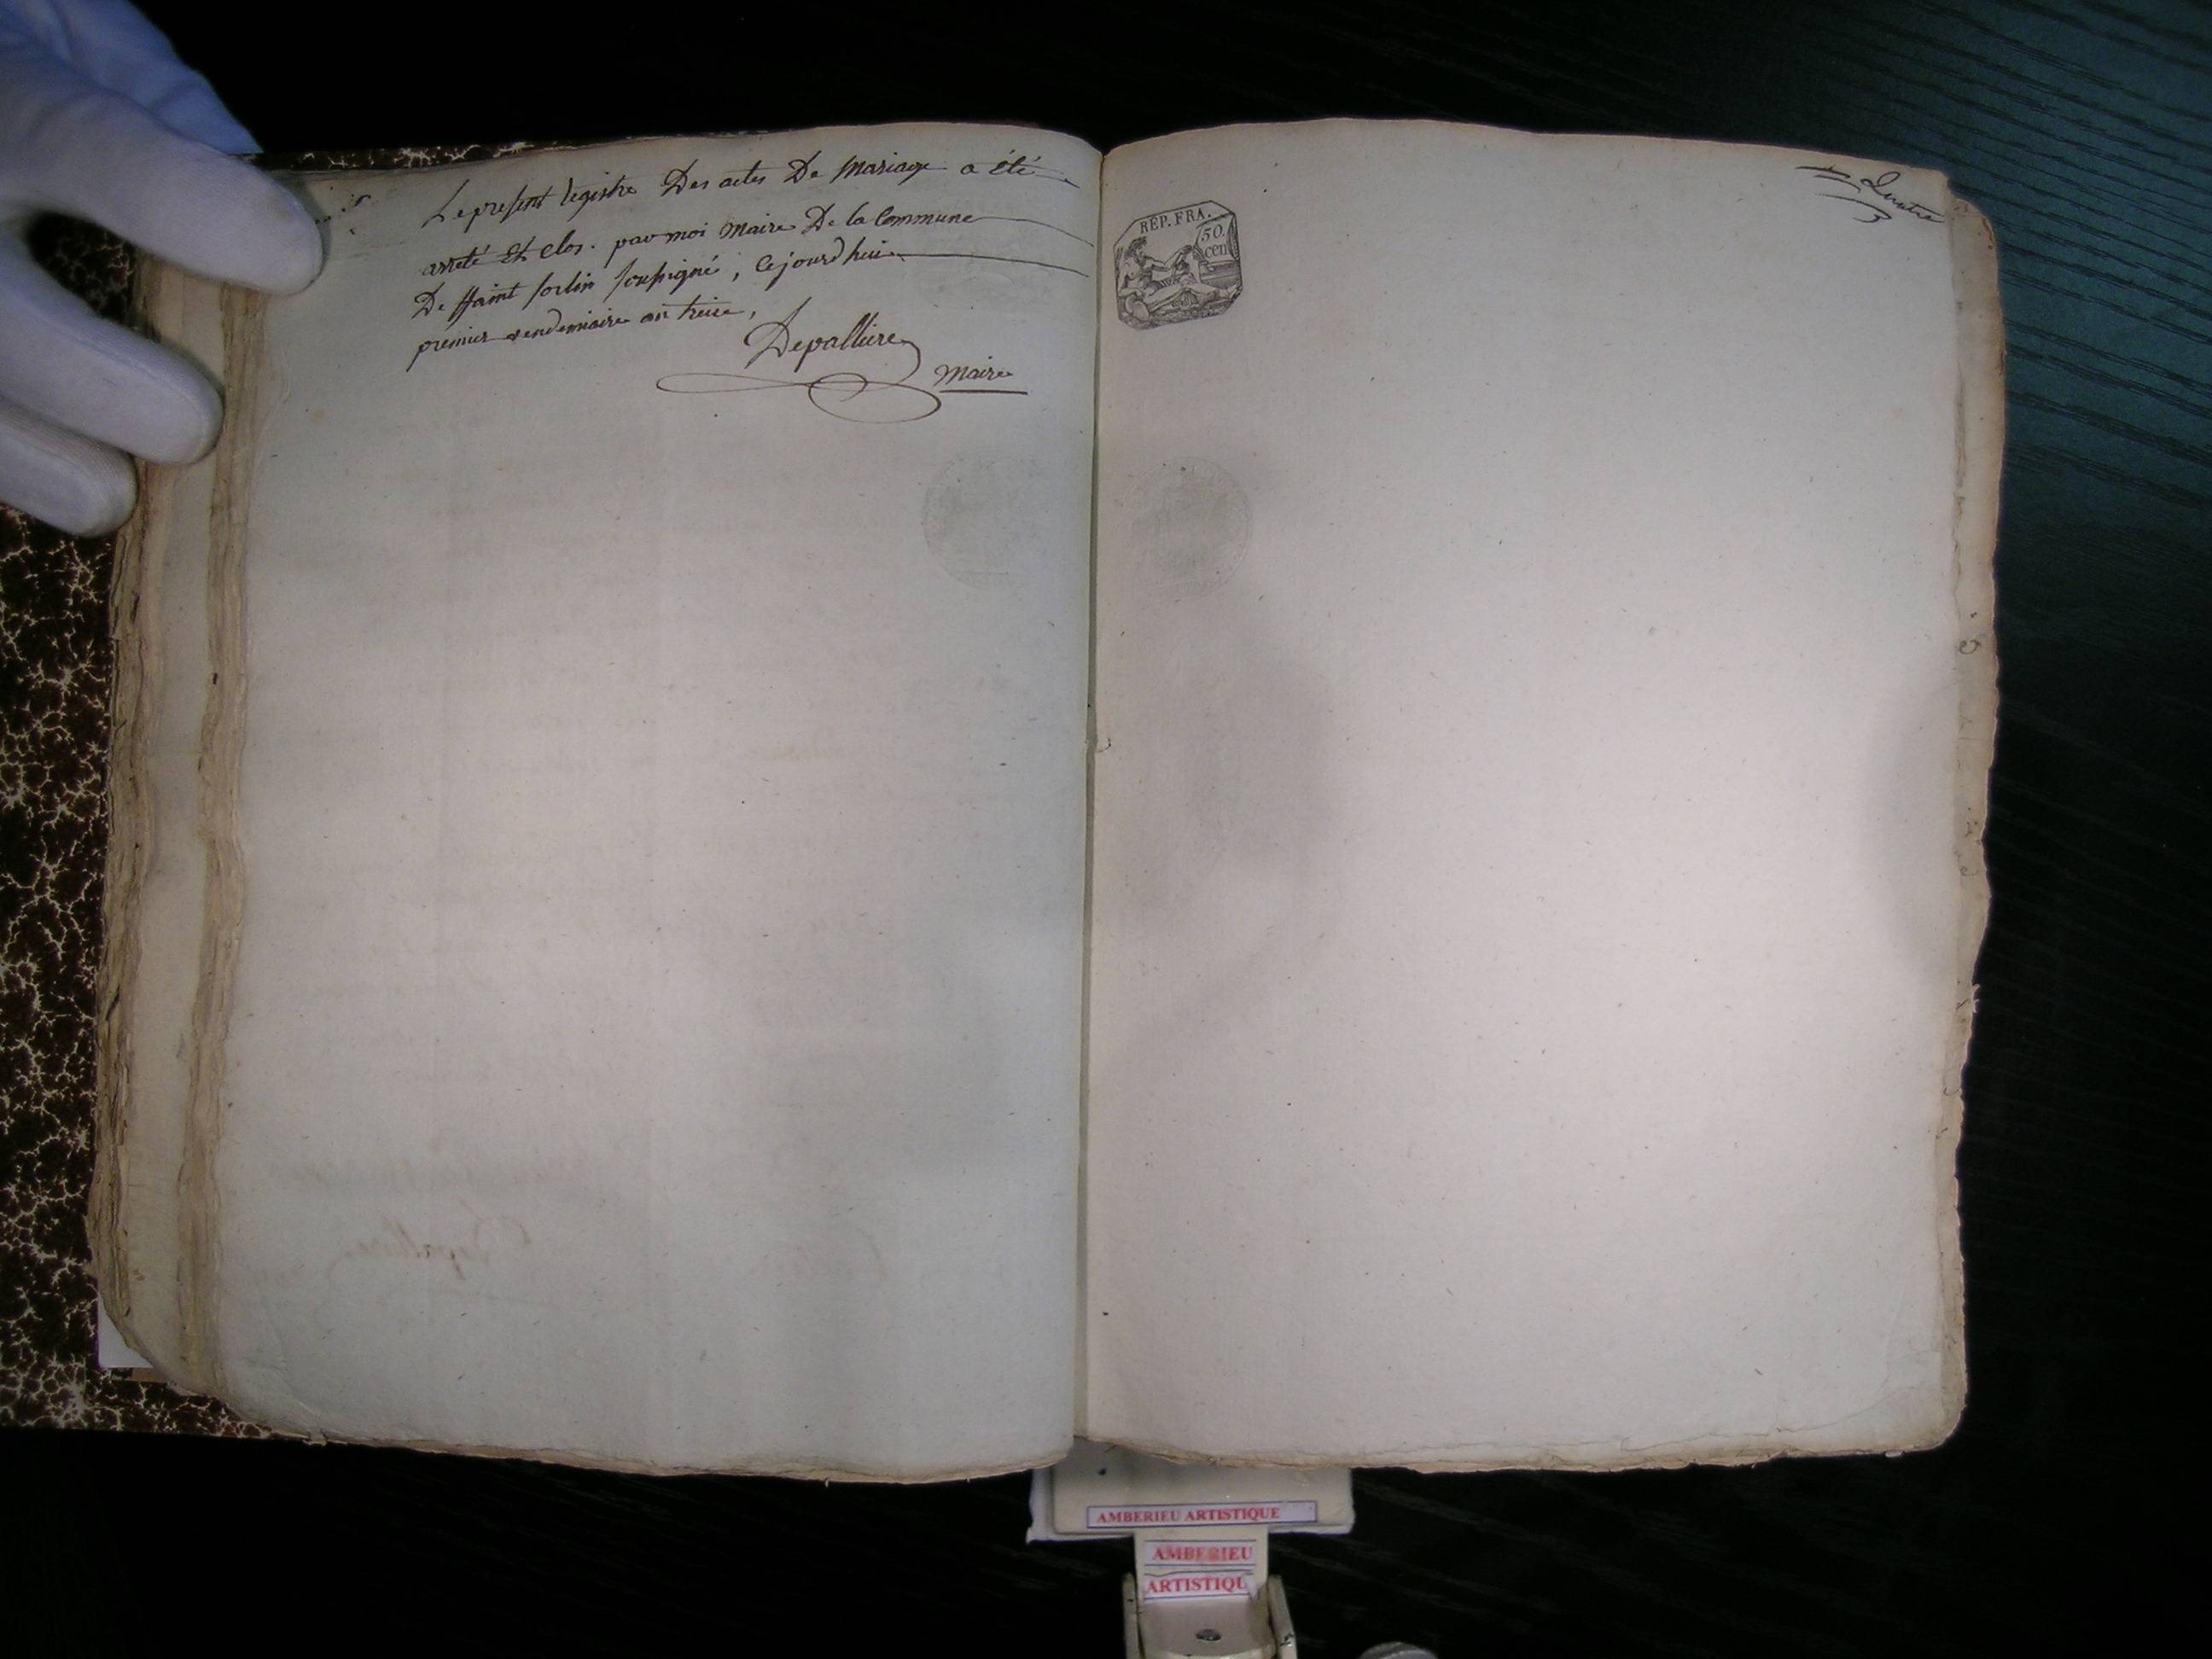 Le present registre Des actes De Mariage a été
arreté Et clos. par moi Maire De la Commune
De ssaint sorlin soussigné, Cejourd'hui
premier vendemiaire an treize,
Depalliere
Maire
REP. FRA.
50.
cen
Quatre
AMBERIEU ARTISTIQUE
AMBERIEU
ARTISTIQU